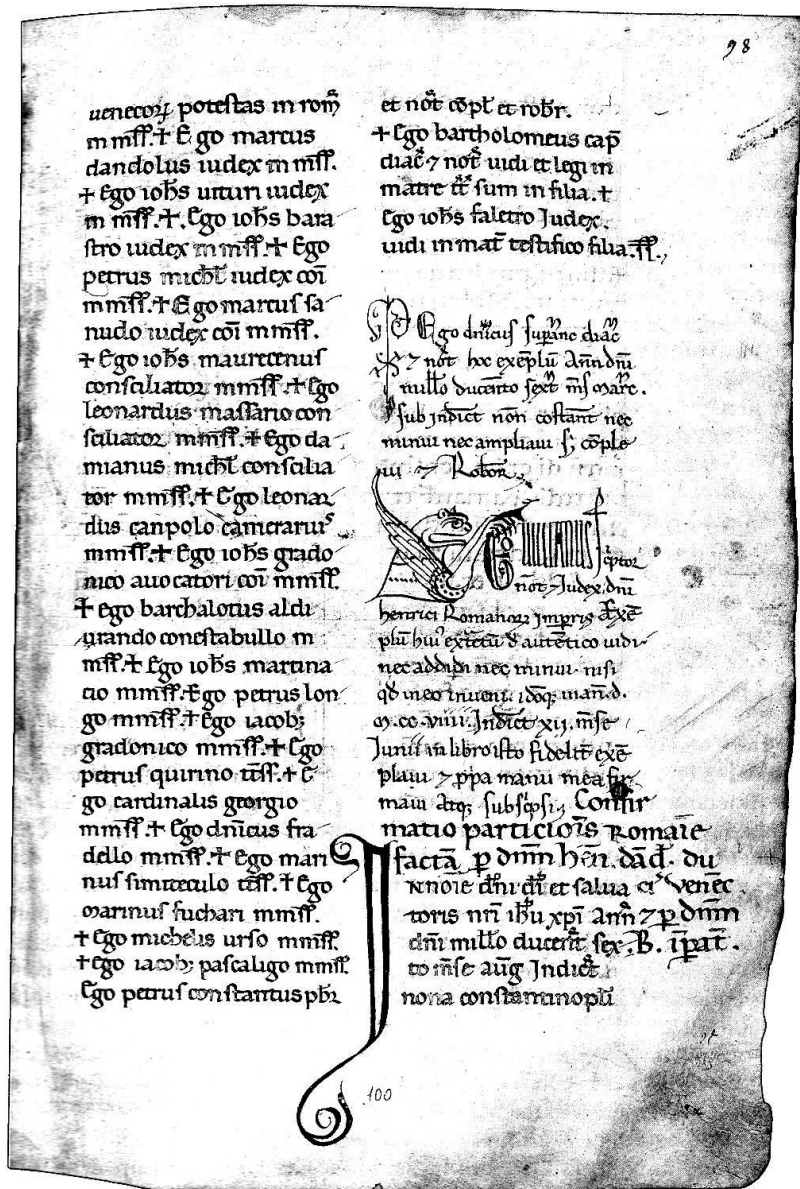 98
uenecoꝝ potestas in rom̃
m mss̃. ✝ Ego marcus
dandolus iudex m mss̃.
✝ Ego ioh̃s uituri iudex
m mss̃. ✝. Ego ioh̃s bara
stro iudex m mss̃. ✝ Ego
petrus michl̃ iudex coĩ
m mss̃. ✝ Ego marcus sa
nudo iudex coĩ m mss̃.
✝ Ego ioh̃s maurecenus
consciliator m mss̃. ✝ Ego
leonardus massario con
sciliator m mss̃. ✝ Ego da
mianus michl̃ conscilia
tor m mss̃. ✝ Ego leonar
dus canpolo camerariuˢ
m mss̃. ✝ Ego ioh̃s grado
nico auocatori coĩ m mss̃.
✝ ego barchalotus aldi
urando conestabullo m
mss̃. ✝ Ego ioh̃s martina
cio m mss̃. Ego petrus lon
go m mss̃. ✝ Ego iacob;
gradonico m mss̃. ✝ Ego
petrus quirino tss̃. ✝ E
go cardinalis georgio
m mss̃. ✝ Ego dñicus fra
dello m mss̃. ✝ Ego mari
nus simiteculo tss̃. ✝ Ego
marinus fuchari m mss̃.
✝ Ego michelis urso m mss̃.
✝ Ego iacob; pascaligo m mss̃.
Ego petrus constantus pb̃r
et not̃ cõpl̃ et rob̃r.
✝ Ego bartholomeus cap̃
diac̃ ⁊ not̃ uidi et legi in
matre t̃t sum in filia. ✝
Ego ioh̃s faletro Judex.
uidi in mat̃ testifico filia. ss̃.
Ego dñicus sup̃anc diac̃
⁊ not̃ hoc exẽplũ Ann̄ dñi
mill̃o ducẽnto sext̃ m̃s marc̃.
sub indict̃ non̄ costant̃ nec
minui nec ampliaui s; cõple
ui ⁊ Robor̃.
sc̃ptor
not̃ ⁊ Judex. dñi
henrici Romanoꝝ impris exẽ
plũ huiˢ autẽtico uidi
nec addidi nec minui. nisi
qd̃ in eo inueni. idoq; mañ. d.
m. cc. viiii. Indict̃ xii. m̃se
Junii in libro isto fidelit̃ exẽ
plaui ⁊ p̱pa manu mea fir
maui atq; subsc̃psi; Confir
matio particiõis Romanie
facta p̱ dñm hẽn. dãd̃. du
N noĩe dñi dĩ et saluacĩ Venec.
toris nr̃i ih̃u xp̃i Ann̄ ⁊ p̱ dñm
dñi mill̃o ducent̃ sex. B. ĩpat̃.
to m̃se aug̃ Indict̃
nona constantinopl̃i
100